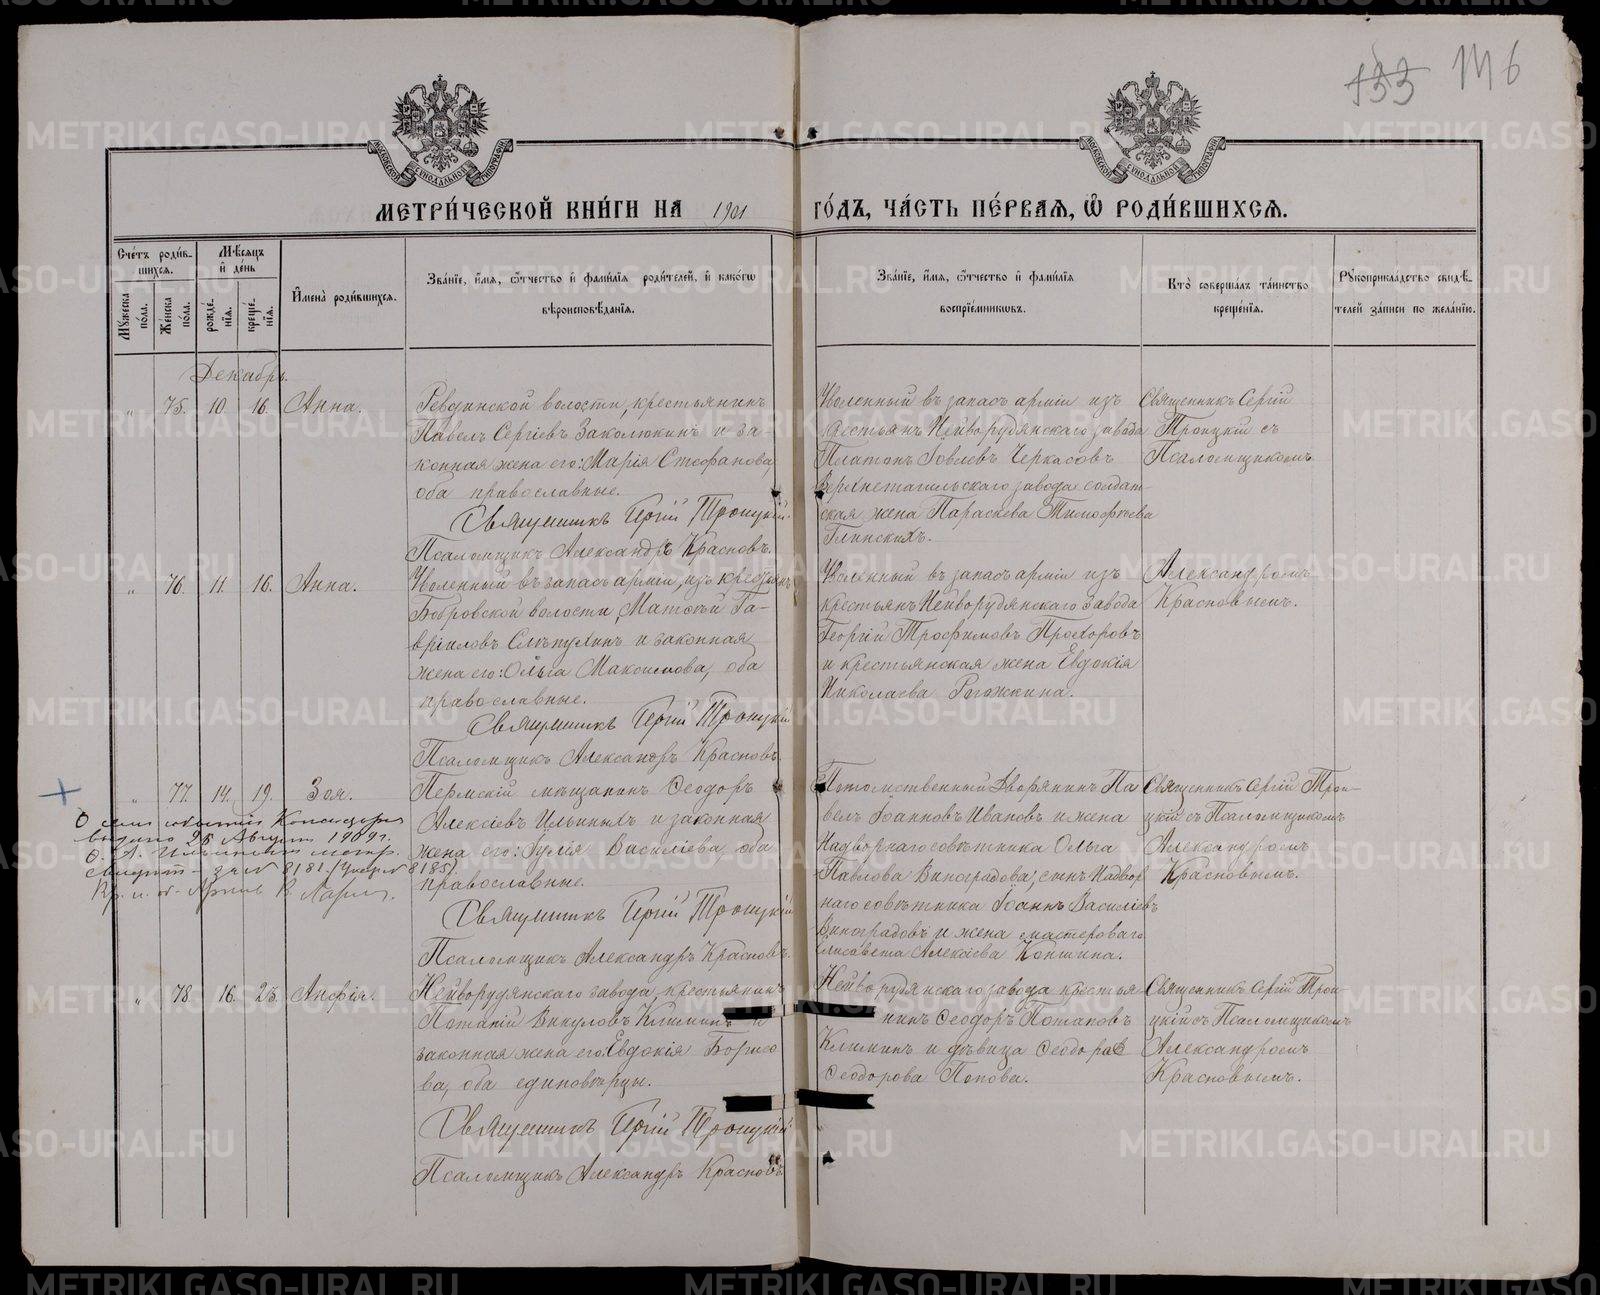 133 146
МЕТРИ́ЧЕСКОЙ КНИ́ГИ НА 1901 ГО́ДЪ, ЧА́СТЬ ПЕ́РВАЯ, Ѿ РОДИ́ВШИХСЯ.
Сче́тъ роди́вшихся.
Мꙋ́жеска по́ла.
Же́нска по́ла.
Мѣ́сяцъ и҆ де́нь
рожде́нїя.
креще́нїя.
И҆мена̀ роди́вшихся.
Зва́нїе, и҆́мя, ѻ҆́тчество и҆ фами́лїя роди́телей, и҆ како́гѡ вѣроисповѣ́данїя.
Зва́нїе, и҆́мя, ѻ҆́тчество и҆ фами́лїя воспрїе́мникѡвъ.
Кто̀ соверша́лъ та́инство креще́нїя.
Рꙋкоприкла́дство свидѣ́телей за́писи по жела́нїю.
Декабрь.
" 75. 10. 16. Анна.
Ревдинской волости, крестьянинъ
Павелъ Сергіевъ Заколюкинъ и за-
конная жена его: Марія Стефанова,
оба православные.
Священникъ Сергій Троицкій.
Псаломщикъ Александръ Красновъ.
Уволенный въ запасъ арміи изъ
крестьянъ Нейворудянскаго завода
Платонъ Іовлевъ Черкасовъ
Верхнетагильскаго завода солдат-
ская жена Параскева Тимофеева
Глинскихъ.
Священникъ Сергій
Троицкій съ
Псаломщикомъ
Александромъ
Красновымъ.
" 76. 11. 16. Анна.
Уволенный въ запасъ арміи, изъ крестьянъ
Бобровской волости, Матѳѣй Га-
вріиловъ Слѣпухинъ и законная
жена его: Ольга Максимова, оба
православные.
Священникъ Сергій Троицкій
Псаломщикъ Александръ Красновъ.
Уволенный въ запасъ арміи изъ
крестьянъ Нейворудянскаго завода
Георгій Трофимовъ Прохоровъ
и крестьянская жена Евдокія
Николаева Рогожкина.
" 77. 14. 19. Зоя.
Пермскій мѣщанинъ Ѳеодоръ
Алексіевъ Ильиныхъ и законная
жена его: Іулія Василіева, оба
православные.
Священникъ Сергій Троицкій
Псаломщикъ Александръ Красновъ.
Потомственный Дворянинъ Па
велъ Іоанновъ Ивановъ и жена
Надворнаго совѣтника Ольга
Павлова Виноградова; сынъ Надвор
наго совѣтника Іоаннъ Василіевъ
Виноградовъ и жена мастероваго
Елисавета Алексіева Коншина.
Священникъ Сергій Трои-
цкій съ Псаломщикомъ
Александромъ
Красновымъ.
О семъ событіи Консисторіей
выдано 25 Августа 1909 г.
8181
" 78. 16. 23. Анфія.
Нейворудянскаго завода, крестьянинъ
Потапій Викуловъ Климинъ и
законная жена его: Евдокія Борисо
ва, оба единовѣрцы.
Священникъ Сергій Троицкій
Псаломщикъ Александръ Красновъ
Нейворудянскаго завода крестья
нинъ Ѳеодоръ Потаповъ
Климинъ и дѣвица Ѳеодора
Ѳеодорова Попова.
Священникъ Сергій Трои-
цкій съ Псаломщикомъ
Александромъ
Красновымъ.
METRIKI.GASO-URAL.RU